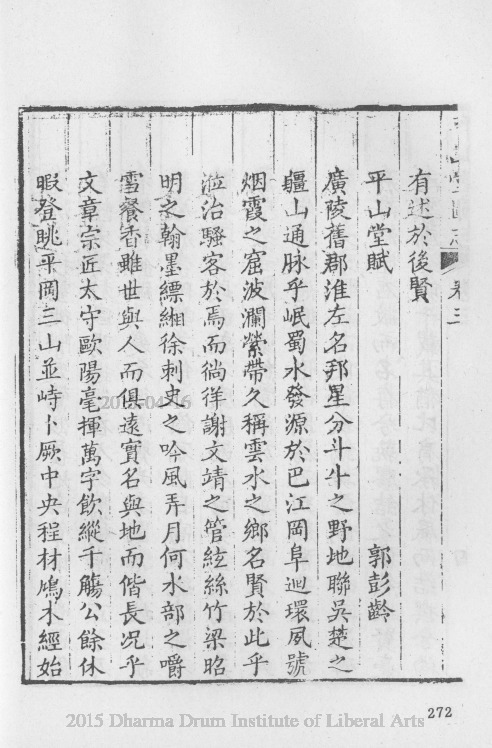 平山堂圖志 卷三
有述於後賢
平山堂賦 郭彭齡
廣陵舊郡淮左名邦星分斗牛之野地聯吳楚之
疆山通脉乎岷蜀水發源於巴江岡阜迴環夙號
烟霞之窟波瀾縈帶久稱雲水之鄉名賢於此乎
涖治騷客於焉而徜徉謝文靖之管絃絲竹梁昭
明之翰墨縹緗徐刺史之吟風弄月何水部之嚼
雪餐香雖世與人而俱遠實名與地而偕長况乎
文章宗匠太守歐陽毫揮萬字飲縱千觴公餘休
暇登眺平岡三山並峙卜厥中央程材鳩木經始
272
2015 Dharma Drum Institute of Liberal Arts